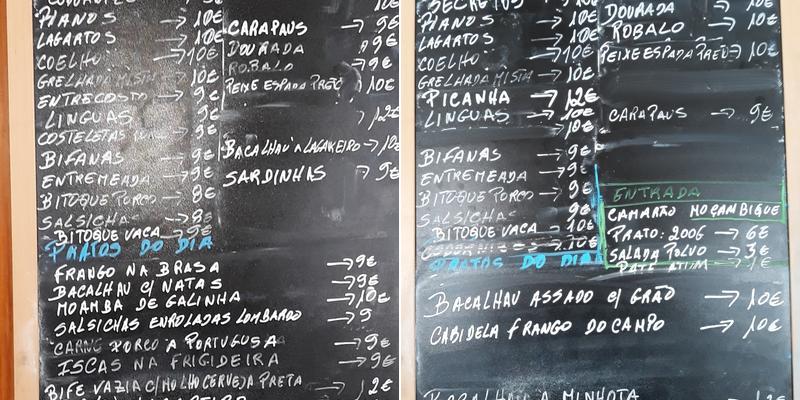 PIANOS → 10€
LAGARTOS → 10€
COELHO → 10€
GRELHADA MISTA → 10€
ENTRECOSTO → 9€
LINGUAS → 9€
COSTELETAS → 9€
BIFANAS → 9€
ENTREMEADA → 9€
BITOQUE PORCO → 8€
SALSICHAS → 8€
BITOQUE VACA → 9€
CARAPAUS → 9€
DOURADA → 9€
ROBALO → 9€
PEIXE ESPADA PRETO → 10€
→ 12€
BACALHAU À LAGAREIRO → 10
SARDINHAS → 9€
PRATOS DO DIA
FRANGO NA BRASA → 9€
BACALHAU C/ NATAS → 9€
MOAMBA DE GALINHA → 10€
SALSICHAS ENROLADAS LOMBARDO → 9
CARNE PORCO A PORTUGUSA → 9€
ISCAS NA FRIGIDEIRA → 9€
BIFE VAZIA C/ MOLHO CERVEJA PRETA → 12€
SECRETOS
PIANOS → 10€
LAGARTOS → 10€
COELHO → 10€
GRELHADA MISTA → 10€
PICANHA → 12€
LINGUAS → 10€
→ 10€
BIFANAS → 9€
ENTREMEADA → 9€
BITOQUE PORCO → 9€
SALSICHAS 9€
BITOQUE VACA → 10€
→ 10€
DOURADA → 10€
ROBALO → 10€
PEIXE ESPADA PRETO → 10€
CARAPAUS → 9€
ENTRADA
CAMARÃO MOÇANBIQUE
PRATO: 200G → 6€
SALADA POLVO → 3€
PATÊ ATUM → 1€
PRATOS DO DIA
BACALHAU ASSADO C/ GRÃO → 10€
CABIDELA FRANGO DO CAMPO → 10€
BACALHAU A MINHOTA